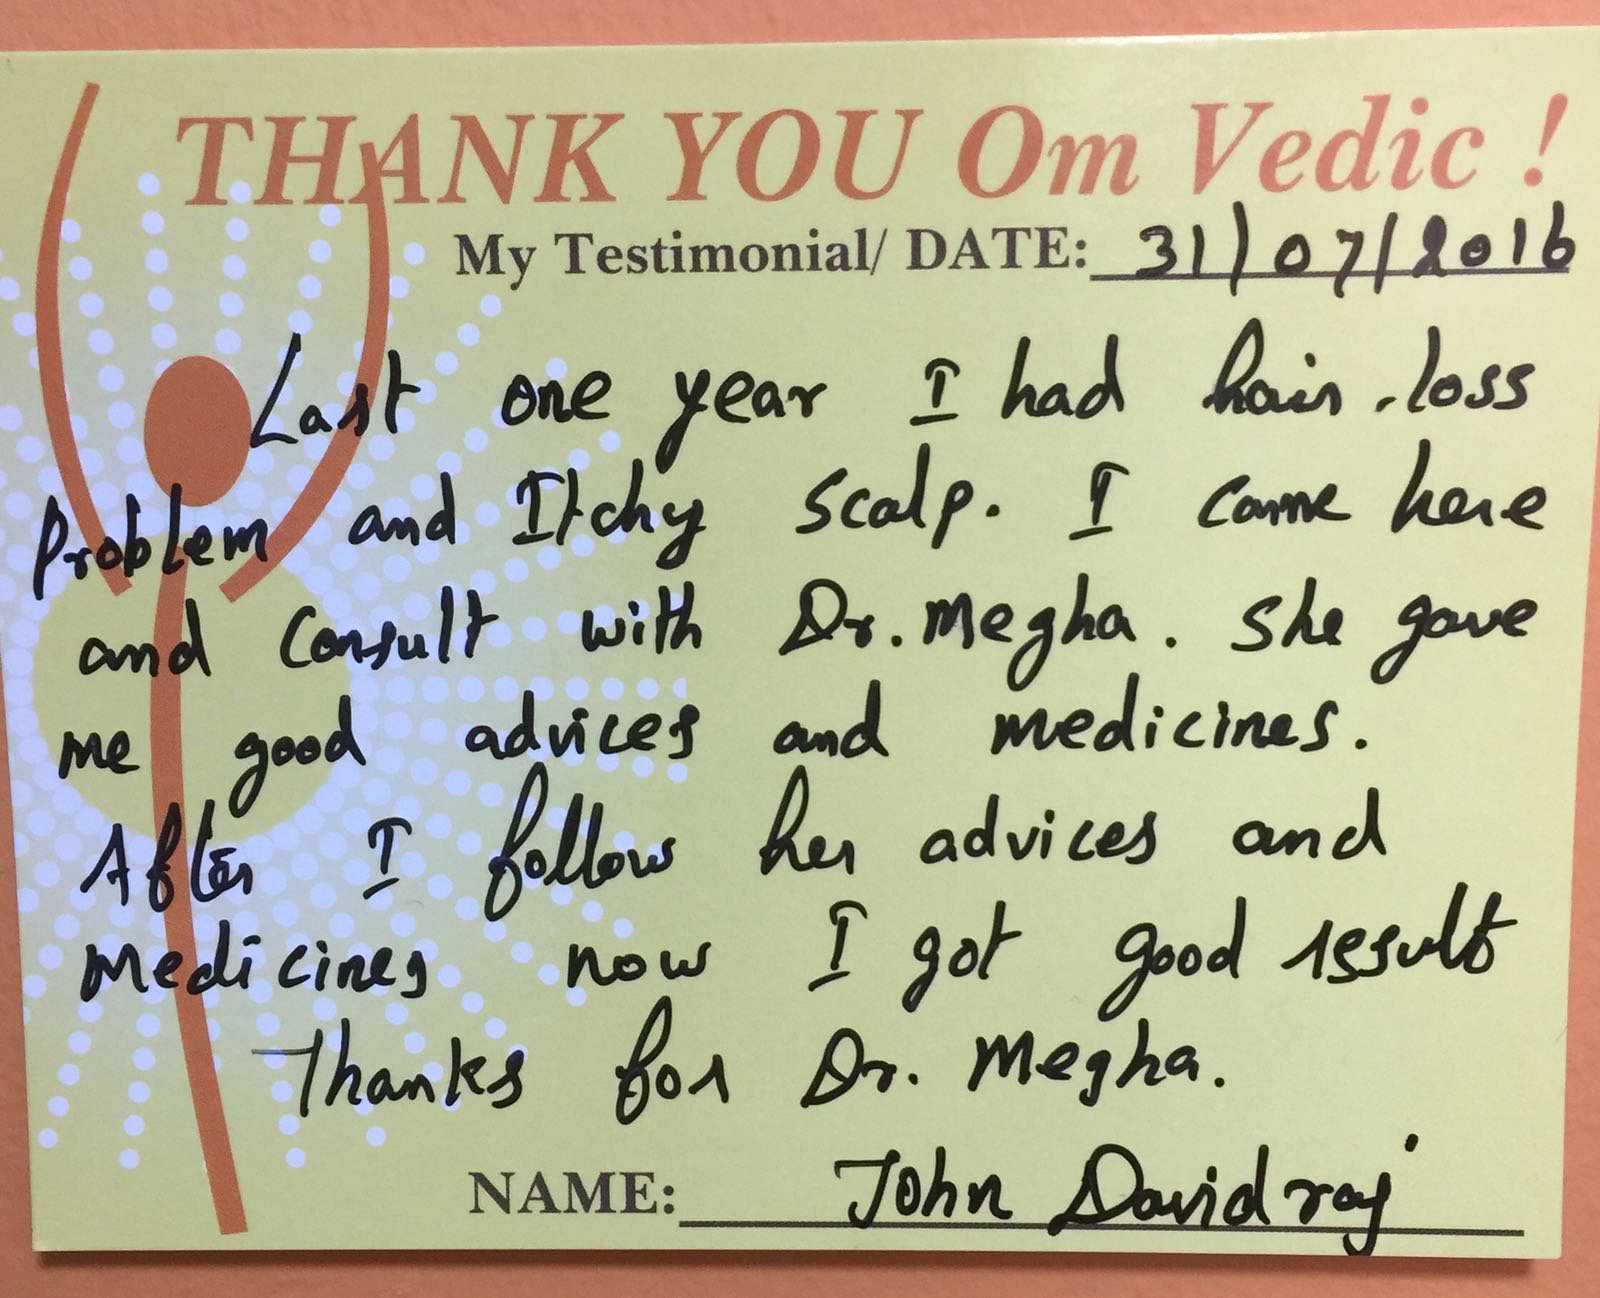 THANK YOU Om Vedic !
My Testimonial/ DATE: 31/07/2016
Last one year I had hair.loss
Problem and Itchy scalp. I came here
and Consult with Dr. Megha. She gave
me good advices and medicines.
After I follow her advices and
medicines now I got good result
Thanks for Dr. Megha.
NAME: John Davidraj